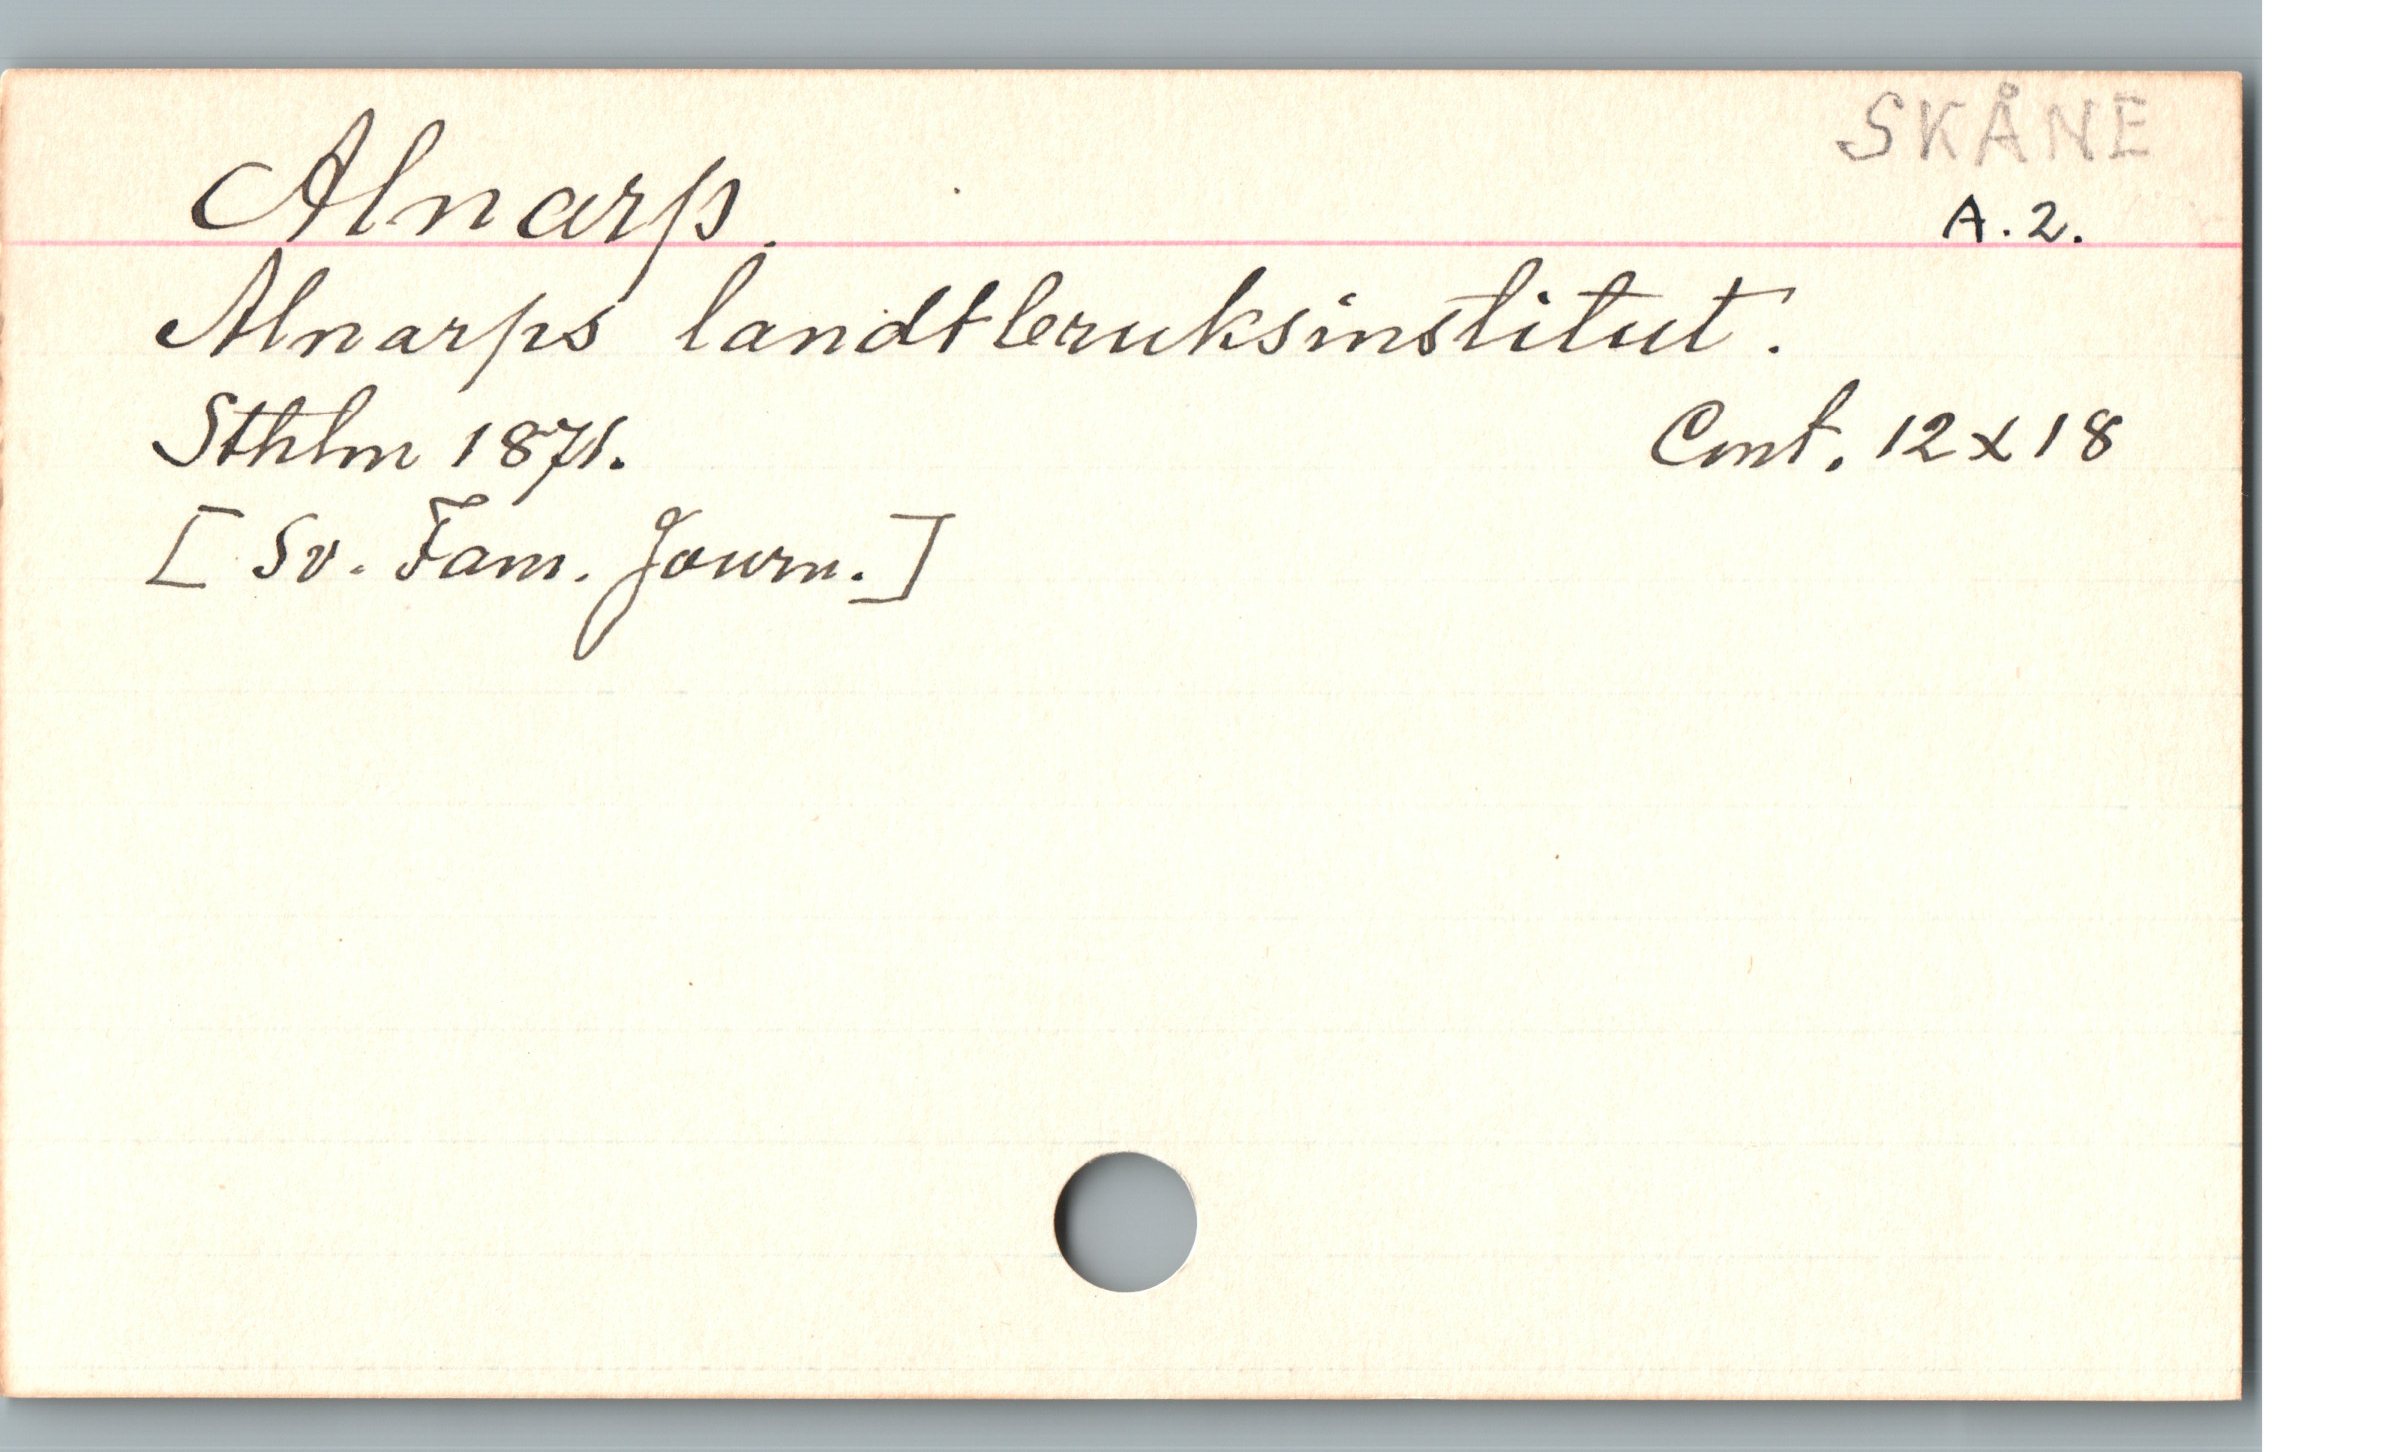 SKÅNE
Alnarp.
A. 2.
Alnarps landtbruksinstitut.
Sthlm 1871. Cont. 12 x 18
[Sv. Fam. Journ.]